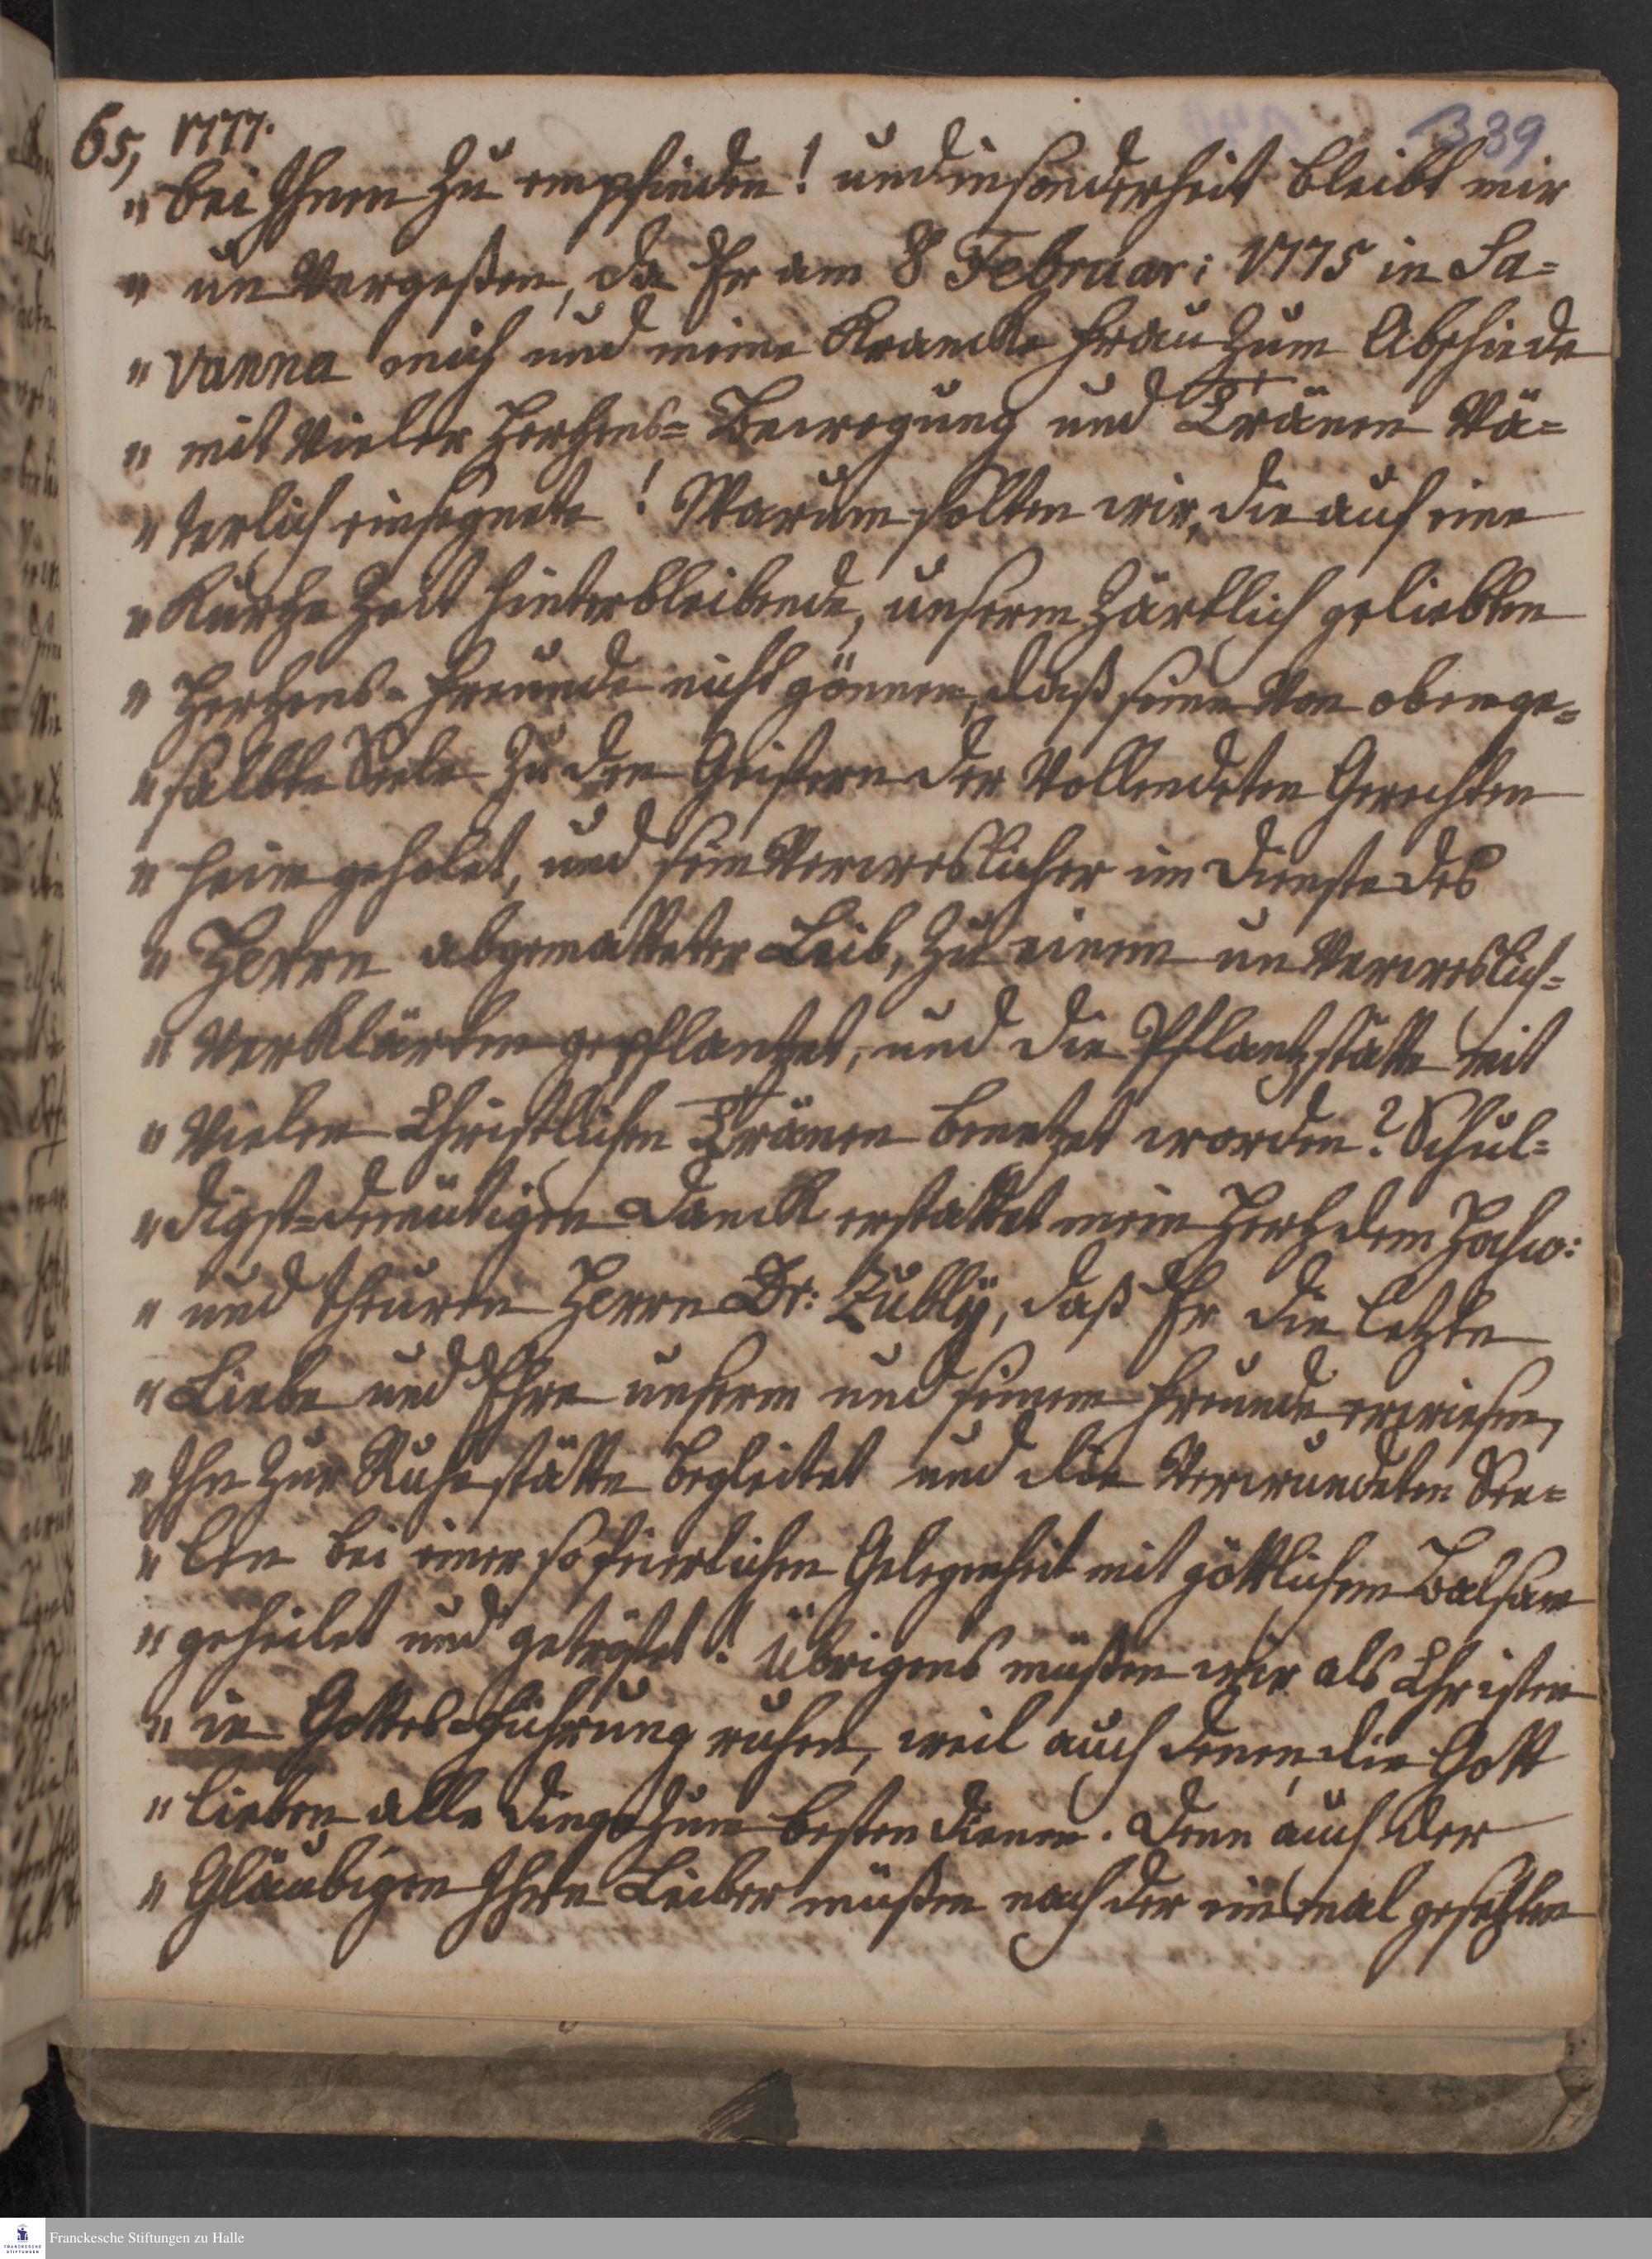 65, 1777.
339
" bei Ihnen zu empfinden! und insonderheit bleibt mir
" un Vergeßen, da Er am 8 Februar: 1775 in Sa=
" vanna mich und meine Krancke Frau zum Abschiede
" mit Vieler Hertzens= Bewegung und Tränen Vä=
" terlich einsegnete! Warum solten wir, die auf eine
" Kurtze Zeit hinterbleibende, unserm Zärtlich geliebten
" Hertzens= Freunde nicht gönnen, daß seine Von oben ge=
" salbte Seele zu den Geistern der Vollendeten Gerechten
" heim geholet, und sein Verweslicher im Dienste des
" Herrn abgematteter Leib, zu einem un Verweslich=
" Verklärten gepflantzet, und die Pflantzstätte mit
" Vielen Christlichen Tränen benetzet worden? Schul=
" digst= demütigen Danck erstattet mein Hertz dem Hochw:
" und theuren Herrn Dr: Zubly, daß Er die letzte
" Liebe und Ehre unserm und seinem Freunde erwiesen,
" Ihn zur Ruhestätte begleitet und die Verwundeten See=
" len bei einer so feierlichen Gelegenheit mit göttlichem Balsam
" geheilet und getröstet! Übrigens müßen wir als Christen
" in Gottes=Führung ruhen, weil auch denen die Gott
" lieben alle Dinge zum besten dienen. Denn auch der
" Gläubigen Ihre Leiber müßen nach der einmal gesetzten
Franckesche Stiftungen zu Halle
FRANCKESCHE
STIFTUNGEN